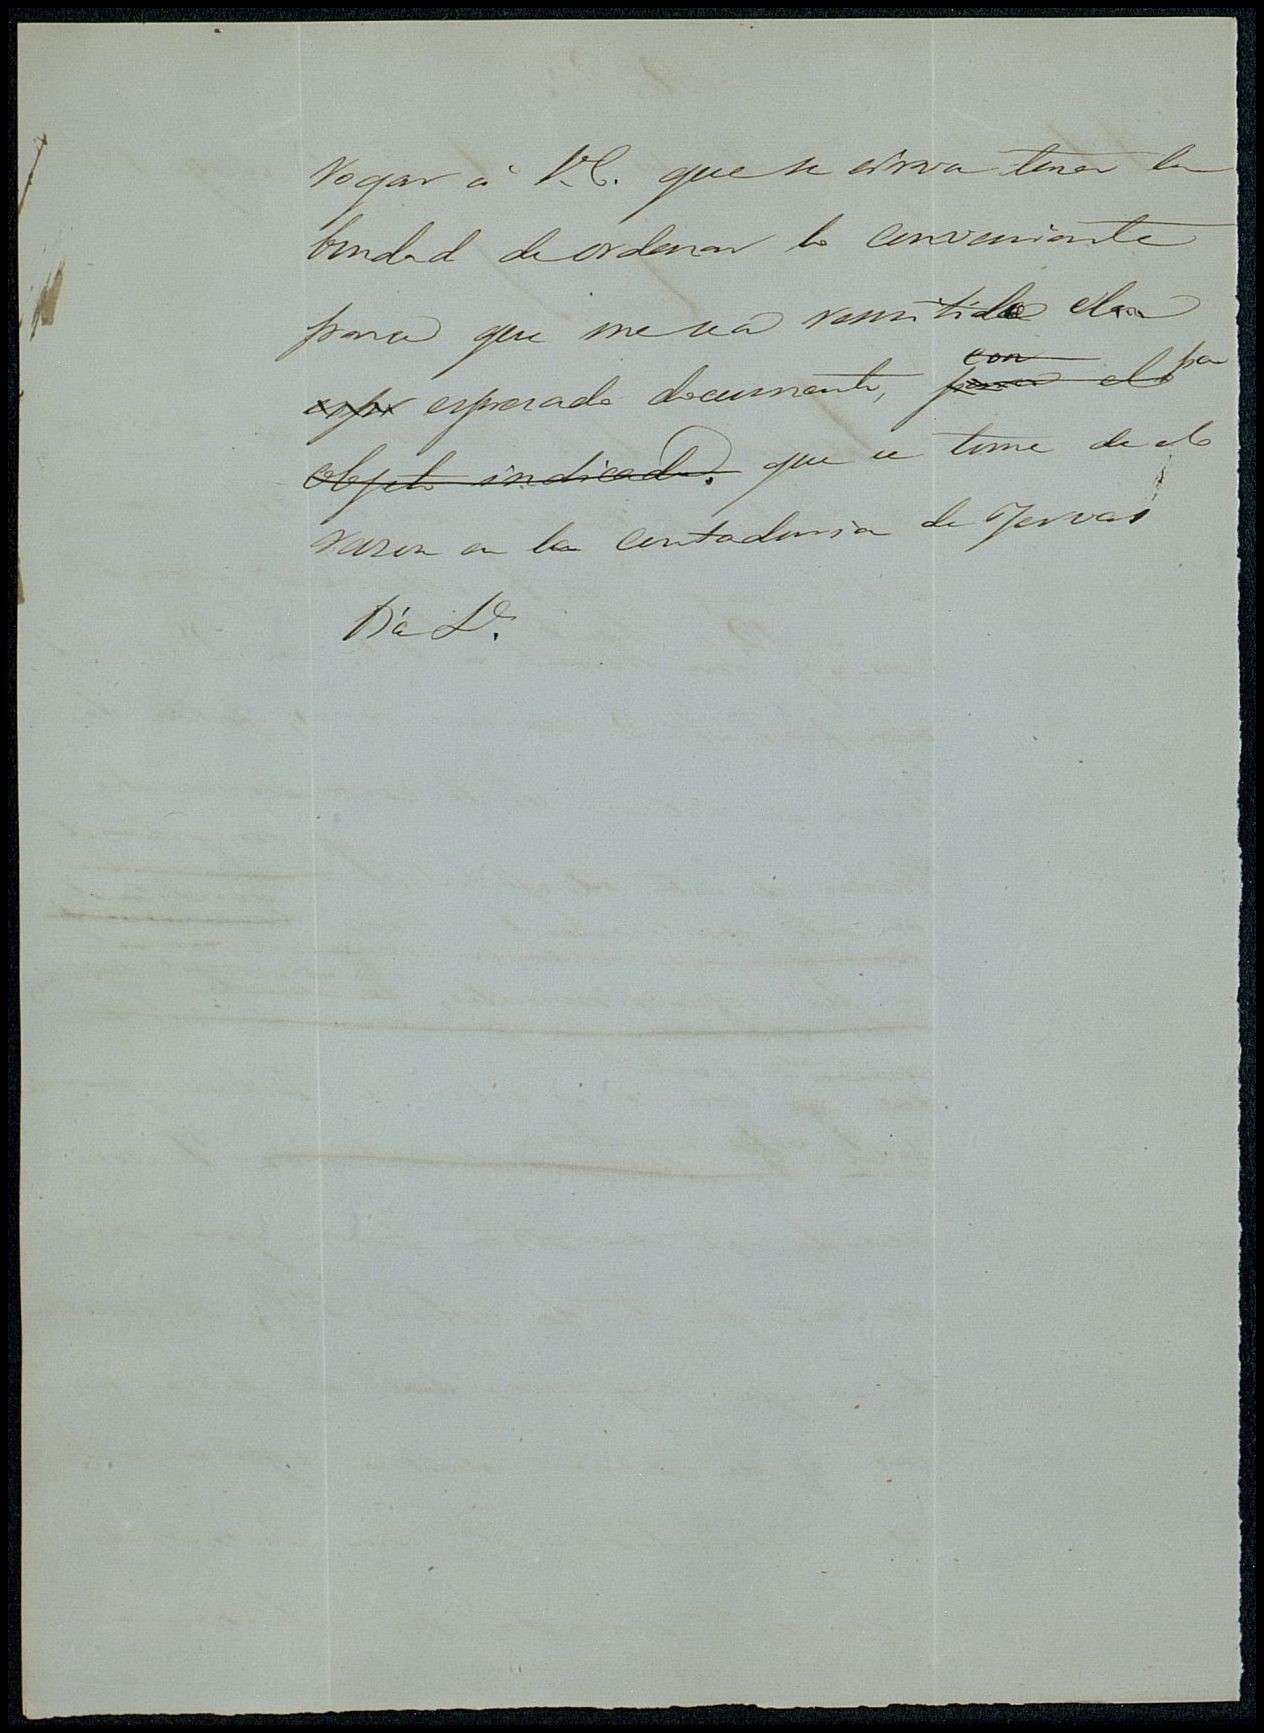 rogar á V.E. que se sirva tener la
bondad de ordenar lo conveniente
para que me sea remitido el
espresado documento, con para el pa
objeto indicado. que se tome de el
razon en la contaduria de
Dia